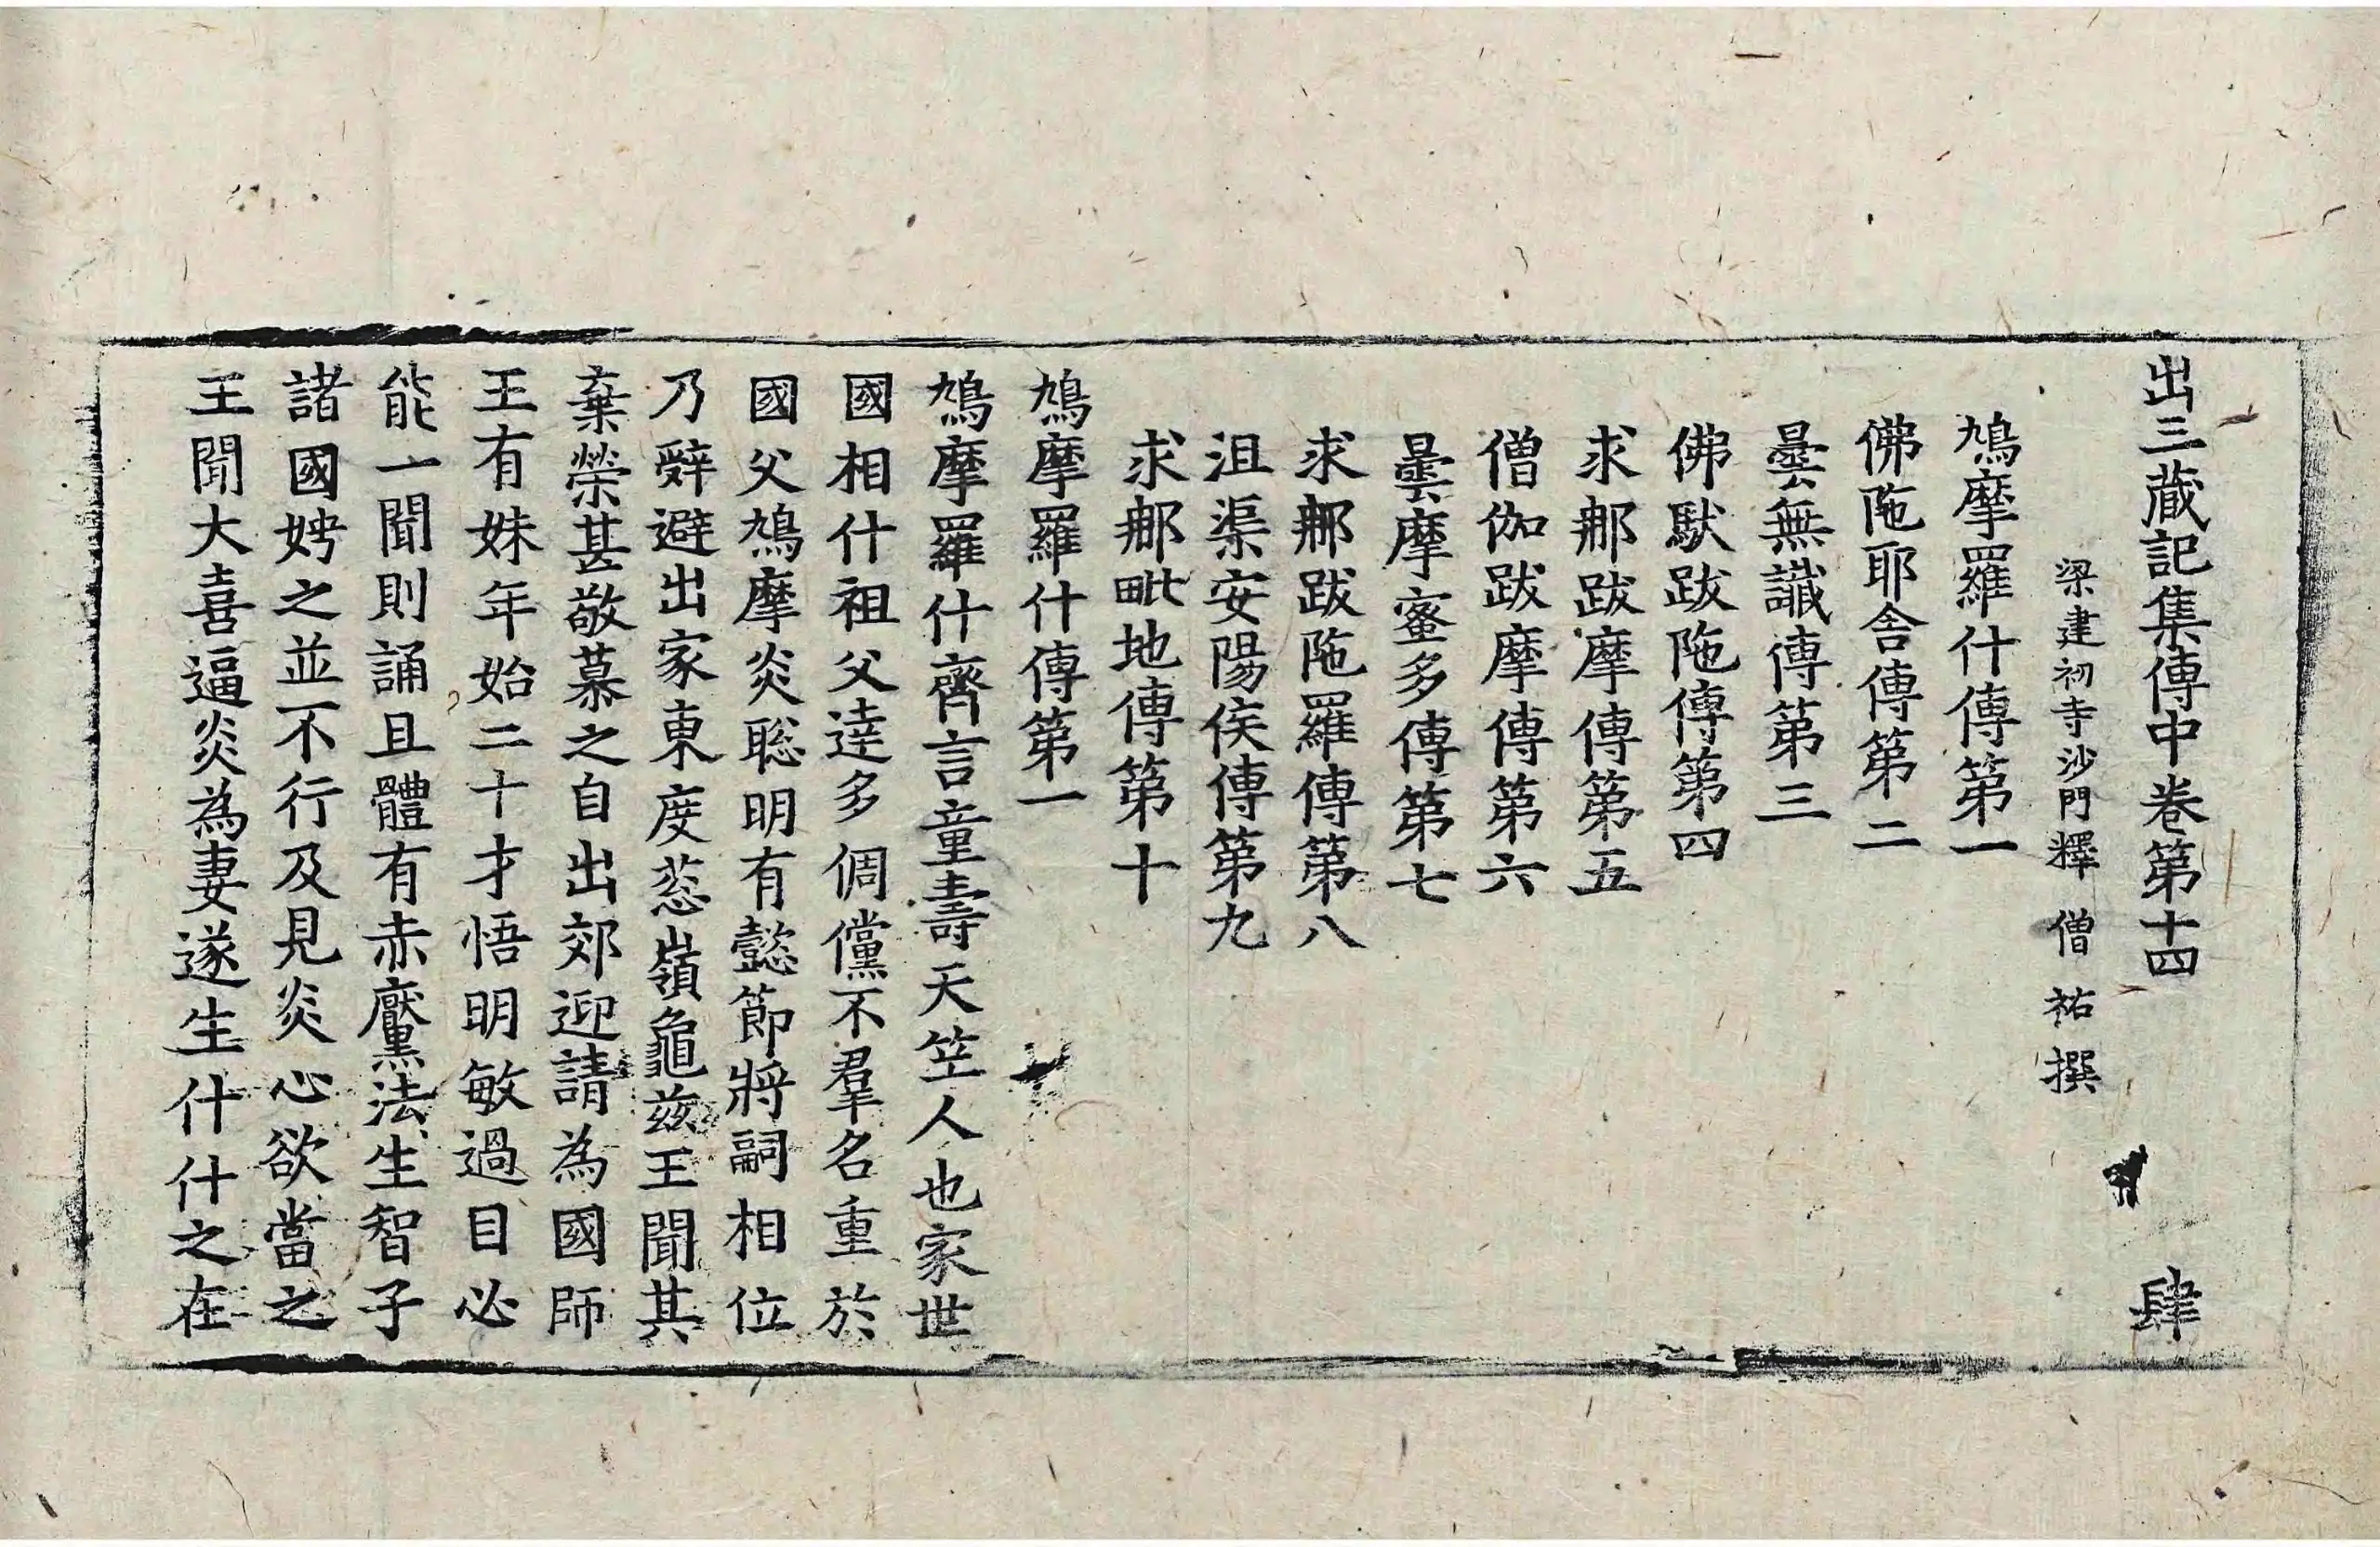 出三藏記集傳中卷第十四 肆
梁建初寺沙門釋僧祐撰
鳩摩羅什傳第一
佛陁耶舍傳第二
曇無讖傳第三
佛馱跋陁傳第四
求那跋摩傳第五
僧伽跋摩傳第六
曇摩蜜多傳第七
求那跋陁羅傳第八
沮渠安陽侯傳第九
求那毗地傳第十
鳩摩羅什傳第一
鳩摩羅什齊言童壽天竺人也家世
國相什祖父達多倜儻不羣名重於
國父鳩摩炎聦明有懿節將嗣相位
乃辤避出家東度葱嶺龜茲王聞其
棄榮甚敬慕之自出郊迎請為國師
王有妹年始二十才悟明敏過目必
能一聞則誦且體有赤黶法生智子
諸國娉之並不行及見炎心欲當之
王聞大喜逼炎為妻遂生什什之在